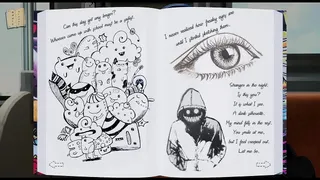 Can this day get any longer?
Whoever came up with school must be a sadist!
I never realised how freaky eyes are
until I started sketching them.
Stranger in the night.
Is this you?
It is what I see.
A dark silhouette.
My mind fills in the rest.
You smile at me,
but I feel creeped out.
Let me be.